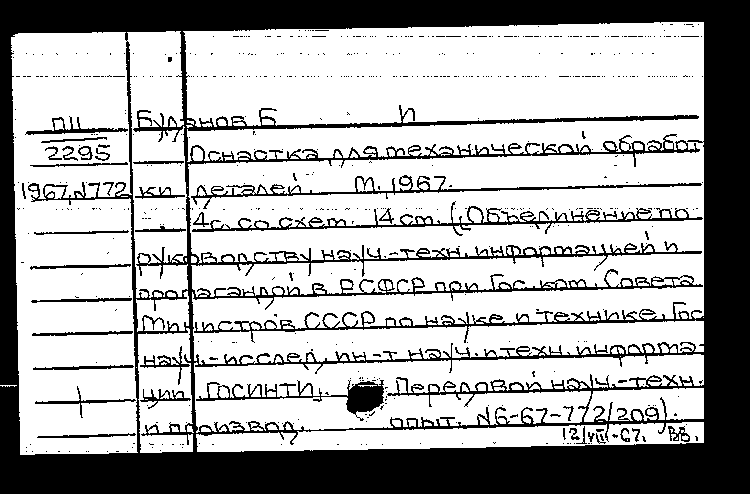 П11 Буланов, Б И
2295 Оснастка для механической обработ
1967, N772 ки деталей. М., 1967.
4с. со схем. 14 см. (Объединение по
руководству науч.-техн. информацией и
пропагандой в РСФСР при Гос. ком. Совета
Министров СССР по науке и технике. Гос
науч.-исслед. ин-т науч. и техн. информа-
ции ГОСИНТИ. Передовой науч.-техн.
и производ. опыт. N6-67-772/209).
12/VIII-67. ВВ.